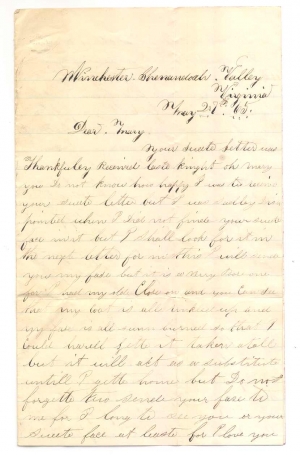 Winchester Shenandoah Valley
Virginia
May 27th 65.
Dear Mary
Your sweete letter was
Thankfuley received laste knight oh mary
you do not know how happy I was to receive
your sweete letter but I was sadley disa
pointed when I did not find your sweete
face in it but I shall look for it in
the next which I will send
you my face but it is a very one
for I had my old Close on and you can see
the my coat is all up and
my face is all sun burned so that I
Could hardly gett it taken atall
but it will act as a substitute
untill I gette home but do not
forgette two sende your face to
me for I long to see you or your
sweete face at leaste for I love you